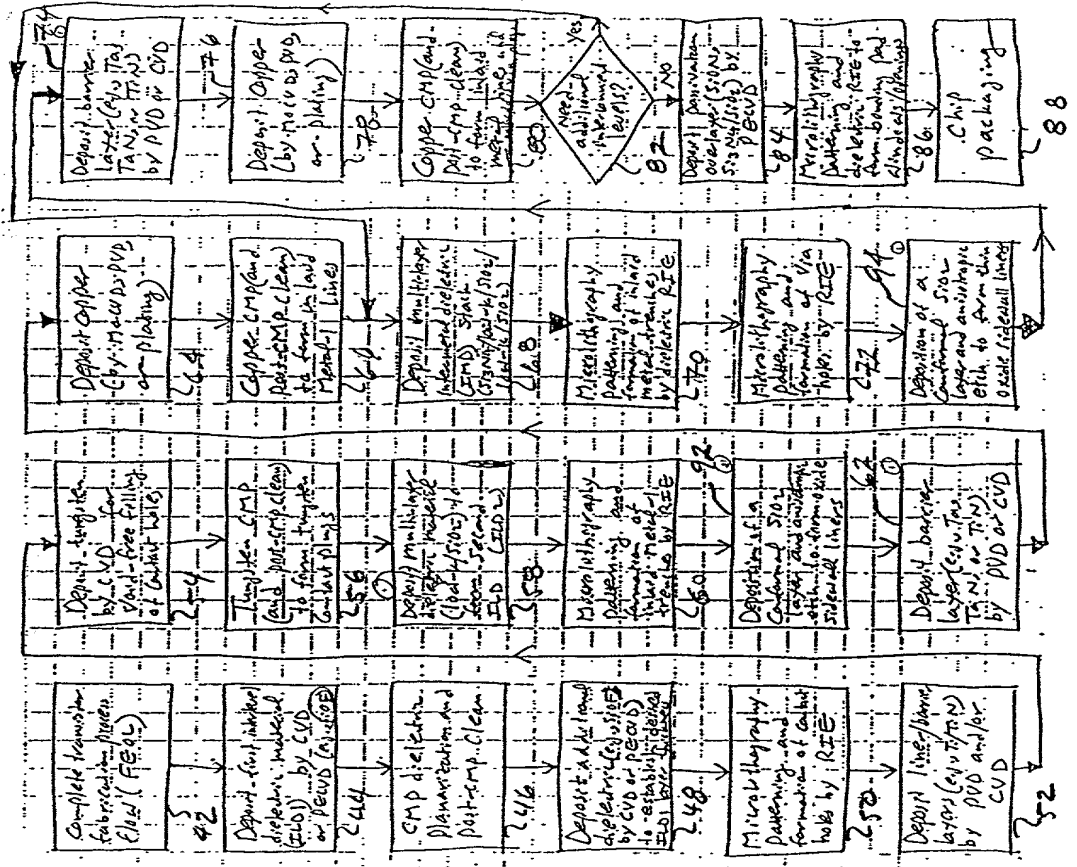 Complete transistor
fabrication process
flow (FEOL)
42
Deposit first interlevel
dielectric material
(ILD1) by CVD
or PECVD
44
CMP dielectric
planarization and
post-CMP clean
46
Deposit additional
dielectric
by CVD or PECVD)
to establish desired
ILD1 over
48
Microlithography
patterning and
formation of contact
holes by RIE
50
Deposit liner/barrier
layers (e.g., Ti/TiN)
by PVD and/or
CVD
52
Deposit tungsten
by CVD for
void-free filling
of contact holes
54
Tungsten CMP
(and post-CMP clean)
to form tungsten
contact plugs
56
Deposit multilayer
dielectric material
(low-k/SiO2) to
form second
ILD (ILD2)
58
Microlithography
patterning and
formation of
inlaid metal-1
trenches by RIE
60
92
Deposition of a
conformal SiO2
layer and anisotropic
etch to form oxide
sidewall liners
62
Deposit barrier
layer (e.g., Ta,
TaN, or TiN)
by PVD or CVD
Deposit copper
(by MOCVD, PVD,
or plating)
64
Copper CMP (and
post-CMP clean)
to form inlaid
Metal 1 lines
66
Deposit multilayer
intermetal dielectric
(IMD) stack
68
Microlithography
patterning and
formation of inlaid
metal trenches
by dielectric RIE
70
Microlithography
patterning and
formation of via
holes by RIE
72
94
Deposition of a
conformal SiO2
layer and anisotropic
etch to form thin
oxide sidewall liners
74
Deposit barrier
layer (e.g., Ta,
TaN, or TiN)
by PVD or CVD
76
Deposit copper
(by MOCVD, PVD,
or plating)
78
Copper CMP (and
post-CMP clean)
to form inlaid
metal lines and
80
Need
additional
interconnect
levels?
Yes
No
82
Deposit passivation
overlayer (SiON,
Si3N4/SiO2) by
PECVD
84
Microlithography
patterning and
dielectric RIE to
form bonding pad
windows/openings
86
Chip
packaging
88